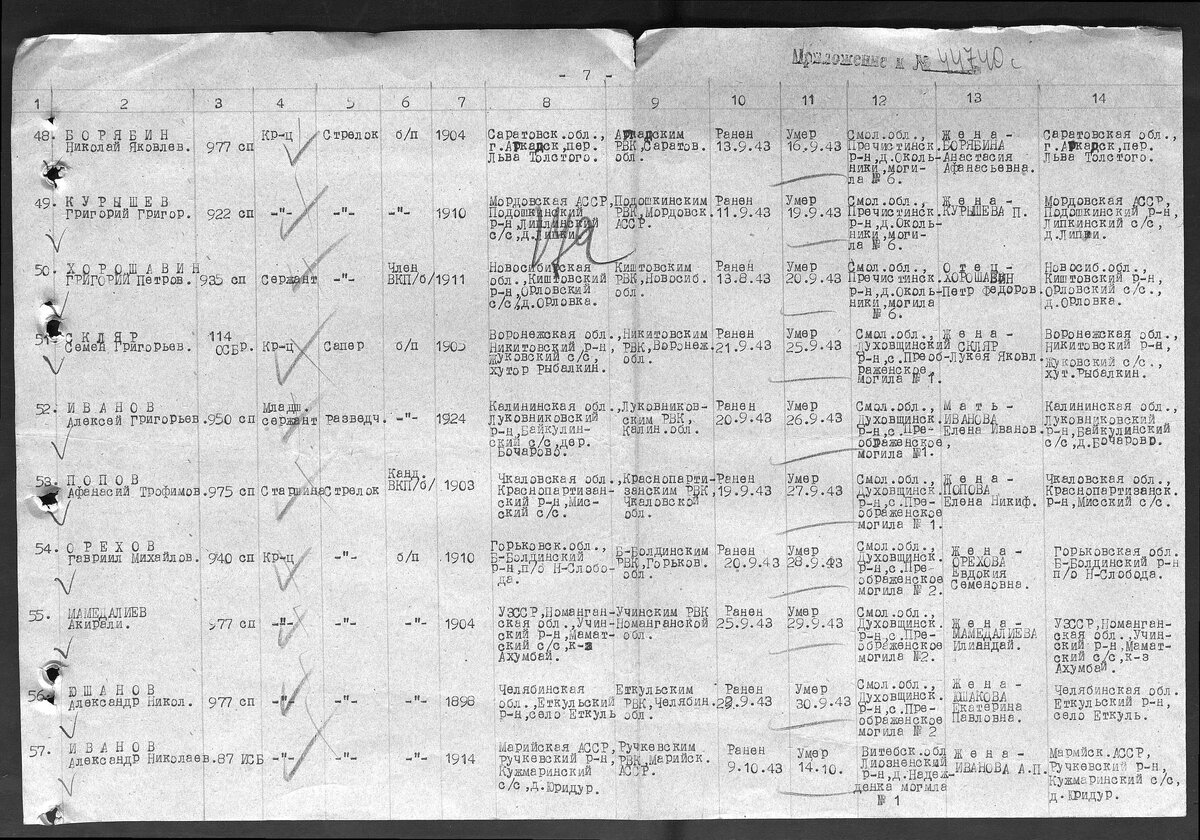 Приложение к № 44740 с
- 7 -
1 2 3 4 5 6 7 8 9 10 11 12 13 14
48.
БОРЯБИН
Николай Яковлев.
977 сп
Кр-ц
Стрелок
б/п
1904
Саратовск.обл.,
г.Аркадск,пер.
Льва Толстого.
Аркадским
РВК,Саратов.
обл.
Ранен
13.9.43
Умер
16.9.43
Смол.обл.,
Пречистинск.
р-н,д.Околь-
ники,моги-
ла № 6.
Жена-
БОРЯБИНА
Анастасия
Афанасьевна.
Саратовская обл.,
г.Аркадск,пер.
Льва Толстого.
49.
КУРЫШЕВ
Григорий Григор.
922 сп
-"-
-"-
-"-
1910
Мордовская АССР,
Подошкинский
р-н,Липлинский
с/с,д.Липки.
Подошкинским
РВК,Мордовск.
АССР.
Ранен
11.9.43
Умер
19.9.43
Смол.обл.,
Пречистинск.
р-н,д.Околь-
ники,моги-
ла № 6.
Жена-
КУРЫШЕВА П.
Мордовская АССР,
Подошкинский р-н,
Липкинский с/с,
д.Липки.
50.
ХОРОШАВИН
ГРИГОРИЙ Петров.
935 сп
Сержант
-"-
Член
ВКП/б/
1911
Новосибирская
обл.,Киштовский
р-н,Орловский
с/с,д.Орловка.
Киштовским
РВК,Новосиб.
обл.
Ранен
13.8.43
Умер
20.9.43
Смол.обл.,
Пречистинск.
р-н,д.Околь-
ники,могила
№ 6.
Отец-
ХОРОШАВИН
Петр Федоров.
Новосиб.обл.,
Киштовский р-н,
Орловский с/с.,
д.Орловка.
51.
СКЛЯР
Семен Григорьев.
114
ОСБр.
Кр-ц
Сапер
б/п
1905
Воронежская обл.,
Никитовский р-н,
Жуковский с/с,
хутор Рыбалкин.
Никитовским
РВК,Воронеж.
обл.
Ранен
21.9.43
Умер
25.9.43
Смол.обл.,
Духовщинский
р-н,с.Преоб-
раженское,
могила № 1.
Жена-
СКЛЯР
Лукея Яковл.
Воронежская обл.,
Никитовский р-н,
Жуковский с/с.,
хут.Рыбалкин.
52.
ИВАНОВ
Алексей Григорьев.
950 сп
Младш.
сержант
разведч.
-"-
1924
Калининская обл.,
Луковниковский
р-н,Байкулин-
ский с/с,дер.
Бочарово.
Луковников-
ским РВК,
Калин.обл.
Ранен
20.9.43
Умер
26.9.43
Смол.обл.,
Духовщинск.
р-н,с.Пре-
ображенское,
могила №1.
Мать-
ИВАНОВА
Елена Иванов.
Калининская обл.,
Луковниковский
р-н,Байкулинский
с/с,д.Бочарово.
53.
ПОПОВ
Афанасий Трофимов.
975 сп
Старшина
Стрелок
Канд.
ВКП/б/
1903
Чкаловская обл.,
Краснопартизан-
ский р-н,Мис-
ский с/с.
Краснопарти-
занским РВК,
Чкаловской
обл.
Ранен
19.9.43
Умер
27.9.43
Смол.обл.,
Духовщинск.
р-н,с.Пре-
ображенское
могила № 1.
Жена-
ПОПОВА
Елена Никиф.
Чкаловская обл.,
Краснопартизанск.
р-н,Мисский с/с.
54.
ОРЕХОВ
Гавриил Михайлов.
940 сп
Кр-ц
-"-
б/п
1910
Горьковск.обл.,
Б-Болдинский
р-н,п/о Н-Слобо-
да.
Б-Болдинским
РВК,Горьков.
обл.
Ранен
20.9.43
Умер
28.9.43
Смол.обл.,
Духовщинск.
р-н,с.Пре-
ображенское
могила № 2.
Жена-
ОРЕХОВА
Евдокия
Семеновна.
Горьковская обл.
Б-Болдинский р-н
п/о Н-Слобода.
55.
МАМЕДАЛИЕВ
Акирали.
977 сп
-"-
-"-
-"-
1904
УЗССР,Номанган-
ская обл.,Учин-
ский р-н,Мамат-
ский с/с,к-з
Ахумбай.
Учинским РВК
Номанганской
обл.
Ранен
25.9.43
Умер
29.9.43
Смол.обл.,
Духовщинск.
р-н,с.Пре-
ображенское
могила №2.
Жена-
МАМЕДАЛИЕВА
Илиандай.
УЗССР,Номанган-
ская обл.,Учин-
ский р-н,Мамат-
ский с/с,к-з
Ахумбай.
56.
ЮШАНОВ
Александр Никол.
977 сп
-"-
-"-
-"-
1898
Челябинская
обл.,Еткульский
р-н,село Еткуль
Еткульским
РВК,Челябин.
обл.
Ранен
Умер
30.9.43
Смол.обл.,
Духовщинск.
р-н,с.Пре-
ображенское
могила № 2
Жена-
ЮШАКОВА
Екатерина
Павловна.
Челябинская обл.
Еткульский р-н,
село Еткуль.
57.
ИВАНОВ
Александр Николаев.
87 ИСБ
-"-
-"-
-"-
1914
Марийская АССР,
Ручкевский р-н,
Кужмаринский
с/с,д.Юридур.
Ручкевским
РВК,Марийск.
АССР.
Ранен
9.10.43
Умер
14.10.
Витебск.обл
Лиозненский
р-н,д.Надеж-
денка могмла
№ 1
Жена-
ИВАНОВА А.П.
Мармйск.АССР,
Ручкевский р-н,
Кужмаринский с/с,
д.Юридур.